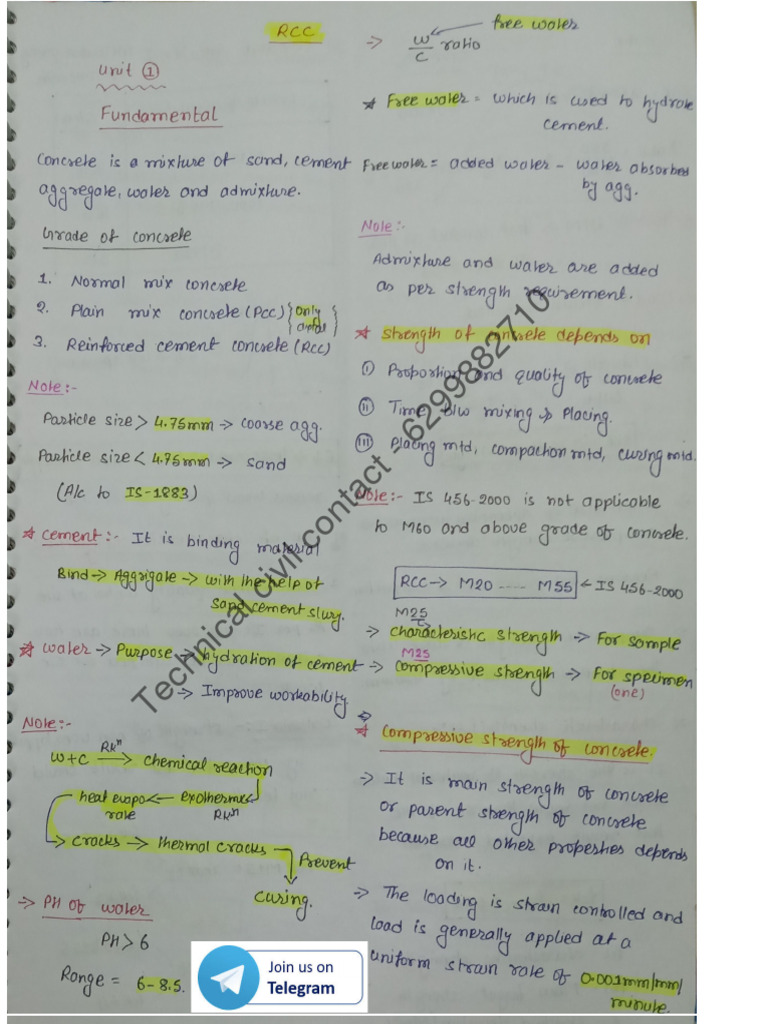 RCC
Unit ①
Fundamental
Concrete is a mixture of sand, cement
aggregate, water and admixture.
Grade of concrete
1. Normal mix concrete
2. Plain mix concrete (PCC) {only
3. Reinforced cement concrete (RCC)
Note:-
Particle size > 4.75mm → coarse agg.
Particle size < 4.75mm → sand
(A/c to IS-1883)
★ Cement:- It is binding material
Bind → Aggrigate → with the help of
sand cement slury.
★ Water → Purpose → hydration of cement
→ Improve workability
Note:-
W+C —Rxn→ chemical reaction
heat evapo ← exothermic
rate Rxn
→ cracks → thermal cracks
Prevent
Curing.
→ PH of water
PH > 6
Range = 6-8.5.
→ W/C ratio ← free water
★ Free water = which is used to hydrate
cement.
Free water = added water - water absorbed
by agg.
Note:-
Admixture and water are added
as per strength requirement.
★ Strength of concrete depends on
Ⓘ Proportion and quality of concrete
Ⓘⓘ Time b/w mixing & Placing.
Ⓘⓘⓘ Placing mtd, compaction mtd, curing mtd.
Note:- IS 456-2000 is not applicable
to M60 and above grade of concrete.
RCC → M20 ..... M55 ← IS 456-2000
M25
→ Characteristic strength → For sample
M25
→ Compressive strength → For specimen
(one)
⇒
★ Compressive strength of concrete.
→ It is main strength of concrete
or parent strength of concrete
because all other propeties depends
on it.
→ The loading is strain controlled and
load is generally applied at a
uniform strain rate of 0.001mm/mm/
minute.
Technical civil contact - 6299882710
Join us on
Telegram